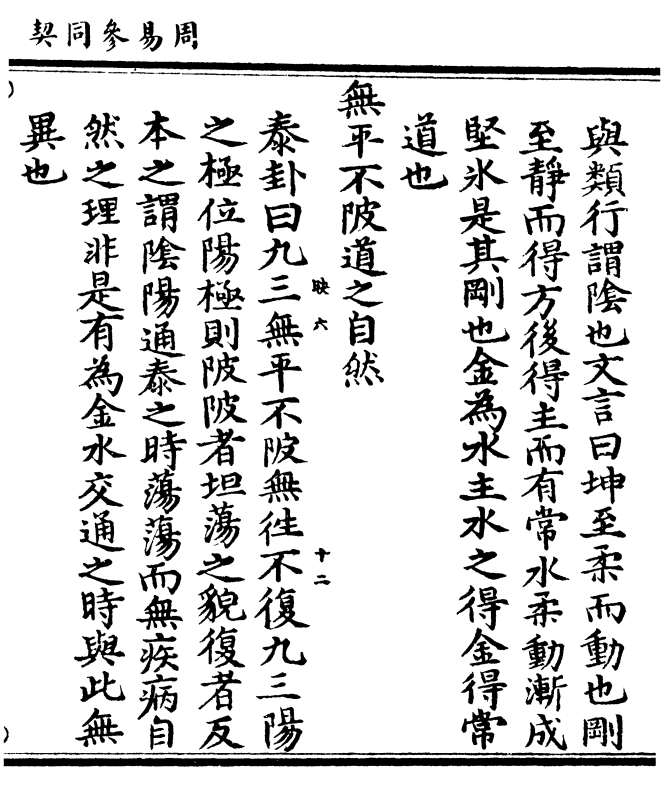 周易參同契
與類行謂陰也文言曰坤至柔而動也剛
至靜而得方後得主而有常水柔動漸成
堅氷是其剛也金為水主水之得金得常
道也
無平不陂道之自然
映六
十二
泰卦曰九三無平不陂無徃不復九三陽
之極位陽極則陂陂者坦蕩之貌復者反
本之謂陰陽通泰之時蕩蕩而無疾病自
然之理非是有為金水交通之時與此無
異也